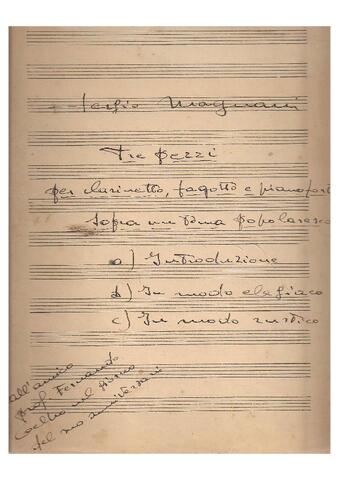 Sergio Magnani
Tre pezzi
per clarinetto, fagotto e pianoforte
sopra un tema popolaresco
a) Introduzione
b) In modo elegiaco
c) In modo rustico
all'amico
prof. Fernando
Coelho nel giorno
del suo anniversario